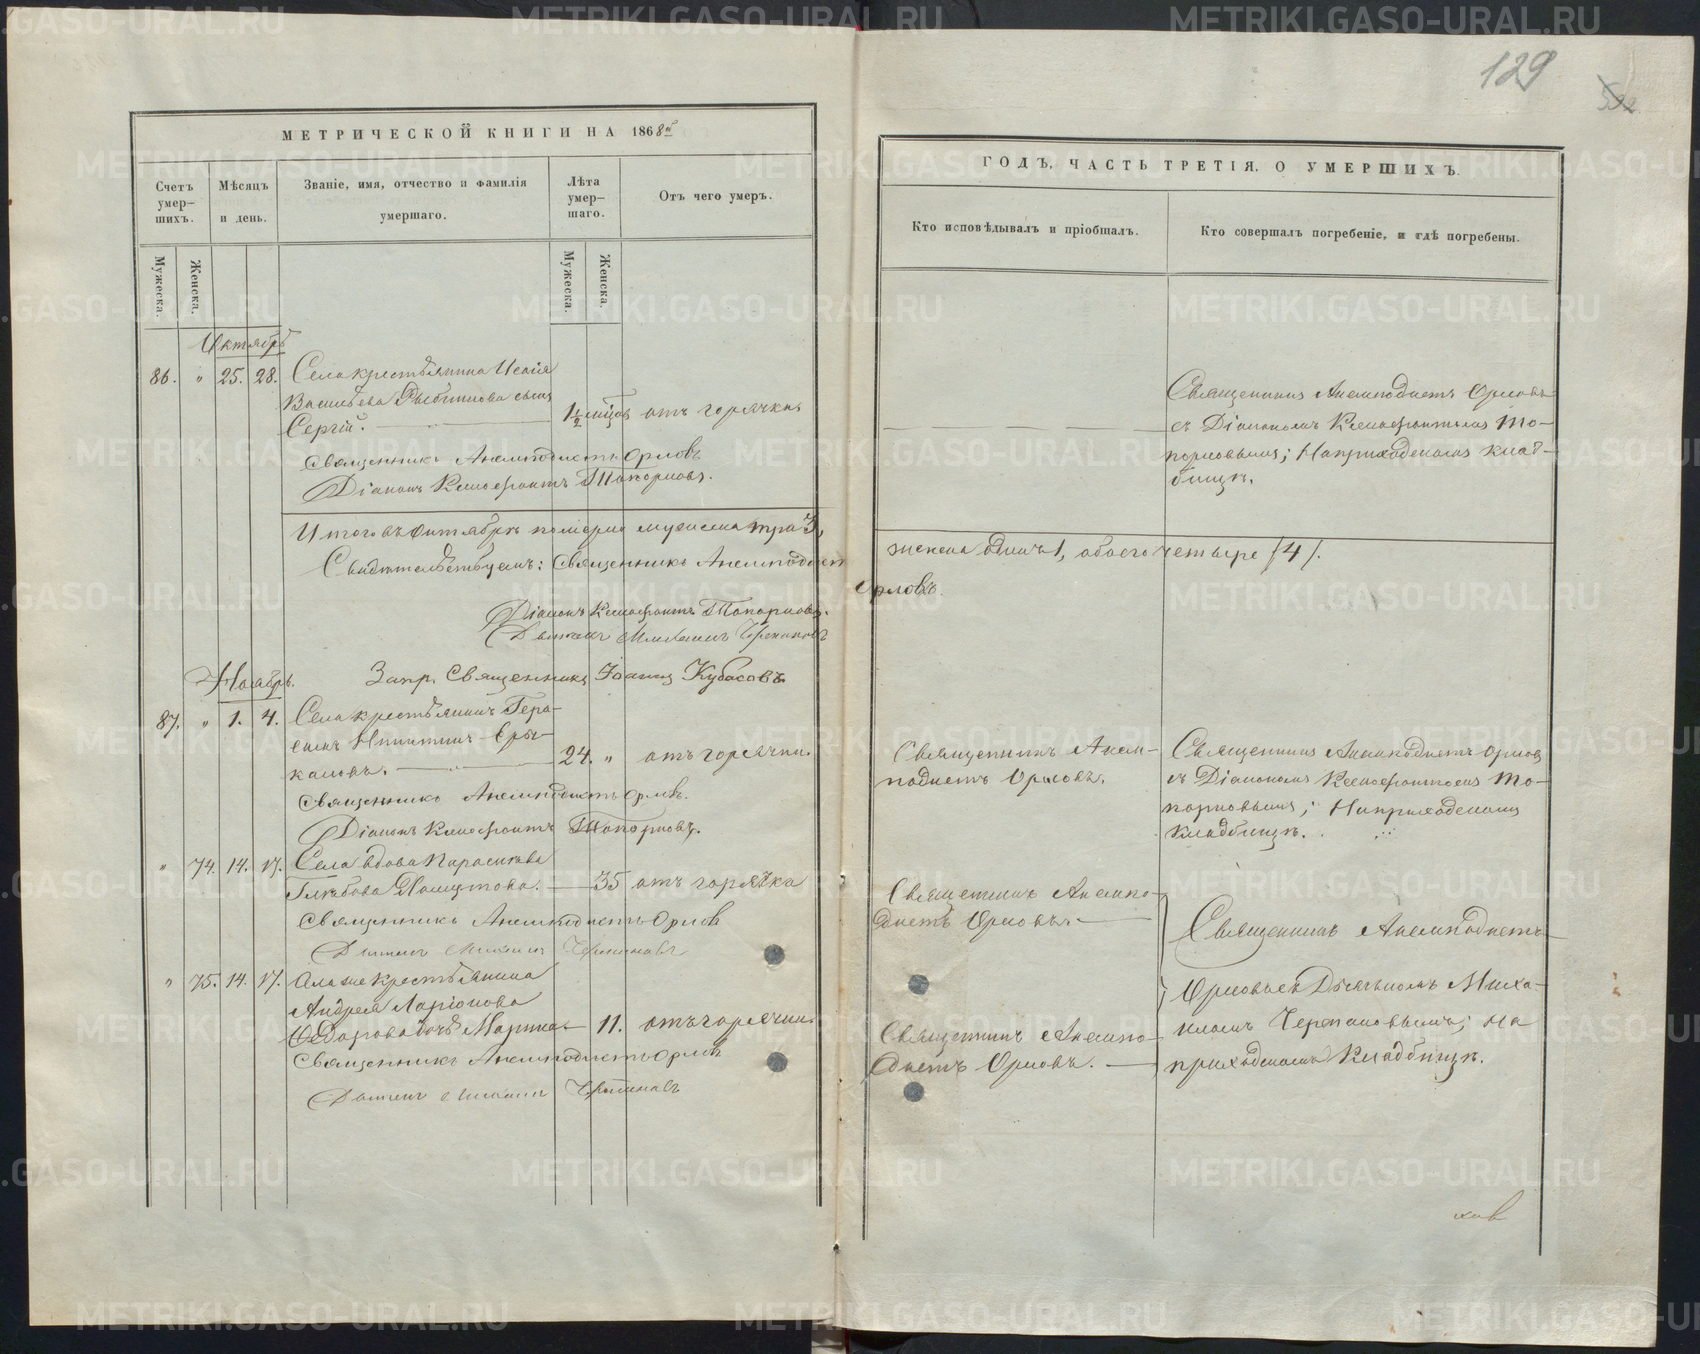 129
МЕТРИЧЕСКОЙ КНИГИ НА 1868й
Счетъ умер-шихъ.
Мѣсяцъ и день.
Званіе, имя, отчество и фамилія умершаго.
Лѣта умер-шаго.
Отъ чего умеръ.
Мужеска.
Женска.
Мужеска.
Женска.
Октябрь
86. " 25. 28. Села крестьянина Исаія
Васильева сынъ
Сергій. 1½ мѣсяц. отъ горячки
Священникъ Анемподистъ Орловъ
Діаконъ Ксенофонтъ Топорковъ.
Итого въ октябрѣ померло мужеска три 3,
Свидѣтельствуемъ: Священникъ Анемподистъ
Діаконъ Ксенофонтъ Топорковъ.
Михаилъ
Ноябрь.
Запр. Священникъ Іоаннъ Кубасовъ
87. " 1. 4. Села крестьянинъ Гера-
симъ Никитинъ Еры-
каловъ. 24. " отъ горячки.
Священникъ Анемподистъ Орловъ.
Діаконъ Ксенофонтъ Топорковъ.
" 74. 14. 17. Села вдова Параскева
Глѣбова 35 отъ горячки
Священникъ Анемподистъ Орловъ
Михаилъ
" 75. 14. 17. крестьянина
Андрея Ларіонова
дочь Марина 11. отъ горячки.
Священникъ Анемподистъ Орловъ
Михаилъ
ГОДЪ, ЧАСТЬ ТРЕТІЯ, О УМЕРШИХЪ.
Кто исповѣдывалъ и пріобщалъ.
Кто совершалъ погребеніе, и гдѣ погребены.
Священникъ Анемподистъ Орловъ
съ Діакономъ Ксенофонтомъ То-
порковымъ; На приходскомъ клад-
бищѣ.
женска одинъ 1, обоего четыре (4).
Орловъ.
Священникъ Анем-
подистъ Орловъ.
Священникъ Анемподистъ Орловъ
съ Діакономъ Ксенофонтомъ То-
порковымъ; На приходскомъ
кладбищѣ.
Священникъ Анемпо-
дистъ Орловъ.
Священникъ Анемподистъ
Орловъ съ Дьячкомъ Миха-
иломъ на
приходскомъ кладбищѣ.
Священникъ Анемпо-
дистъ Орловъ.
METRIKI.GASO-URAL.RU